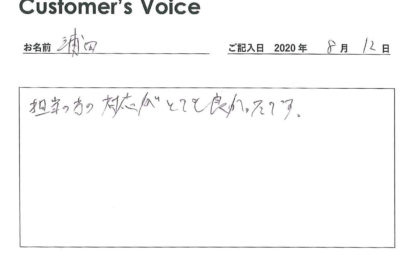 Customer's Voice
お名前 浦田 ご記入日 2020 年 8 月 12 日
担当の方の対応がとても良かったです。